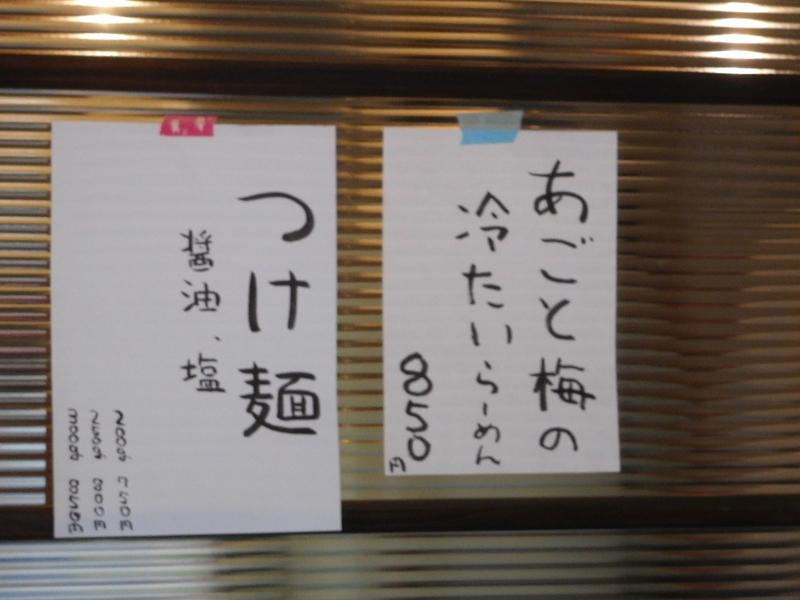 あごと梅の
冷たいらーめん
850円
つけ麺
醤油、塩